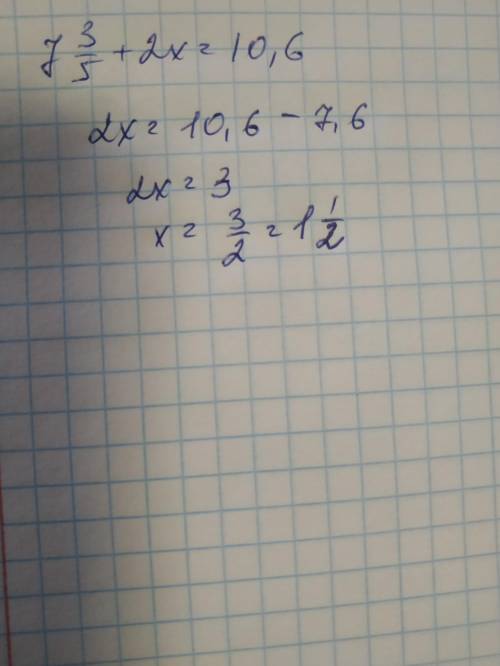 7 3/5 + 2x = 10,6
2x = 10,6 - 7,6
2x = 3
x = 3/2 = 1 1/2